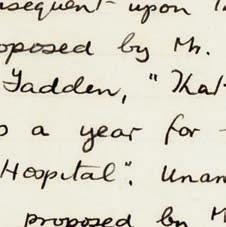 nsequent upon
oposed by Mr.
Gadden, "That
a year for
Hospital". Unan
proposed by M